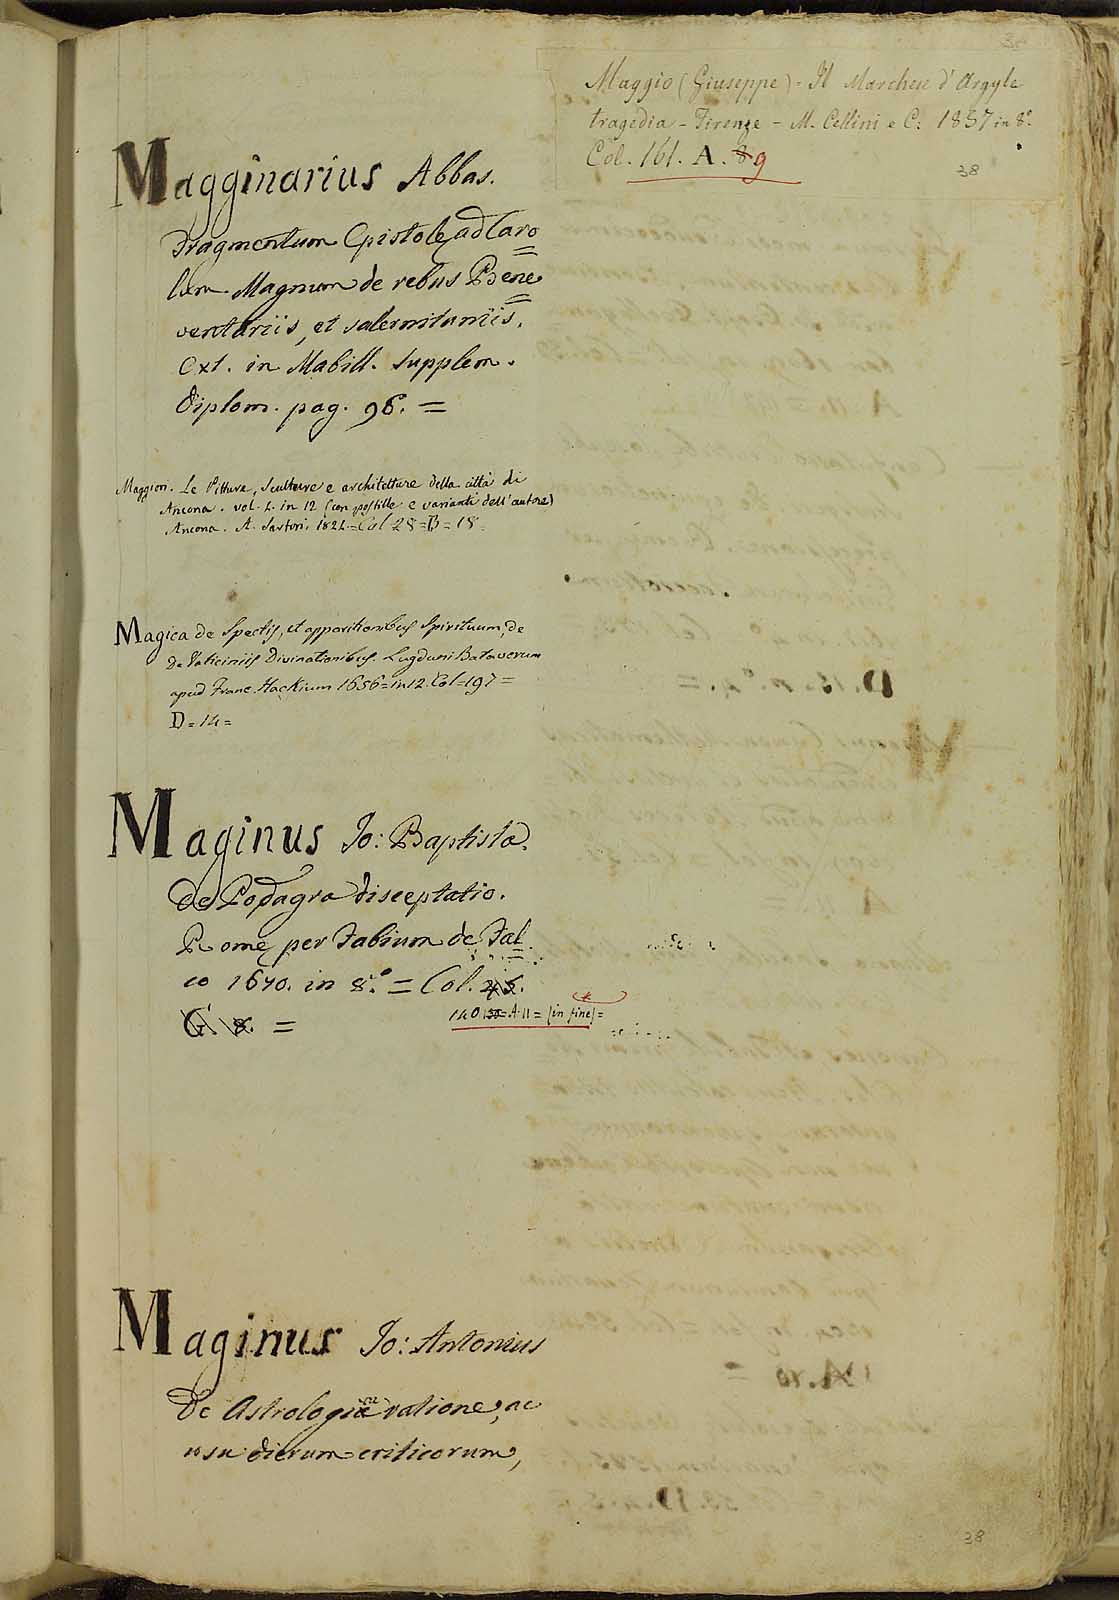 38
Maggio (Giuseppe) = Il Marchese d'Argyle
tragedia - Firenze - M. Cellini e C: 1857 in 8º.
Col. 161. A. 8 9
38
Magginarius Abbas.
Fragmentum Epistolę ad Caro
lum Magnum de rebus Bene
ventariis, et salernitaniis.
Ext. in Mabill. Supplem.
Diplom. pag. 96. =
Maggiori. Le Pitture, Sculture e architetture della città di
Ancona. vol. 1. in 12 (con postille e varianti dell'autore)
Ancona. A. Sartori. 1821 = Col 28 = B = 18.
Magica de Spectis, et apparitionibus Spirituum, de
de Vaticiniis Divinationibus. Lugduni Batavorum
apud Franc. Hackium 1656 = in 12. Col = 197 =
D = 14 =
Maginus Jo: Baptista.
de Podagra disceptatio.
Romę per Fabium de Fal
co 1670. in 8.º = Col. 45.
G. 8. =
140 = A 11 = (in fine) =
Maginus Jo: Antonius
De Astrologica ratione, ac
usu dierum criticorum,
38